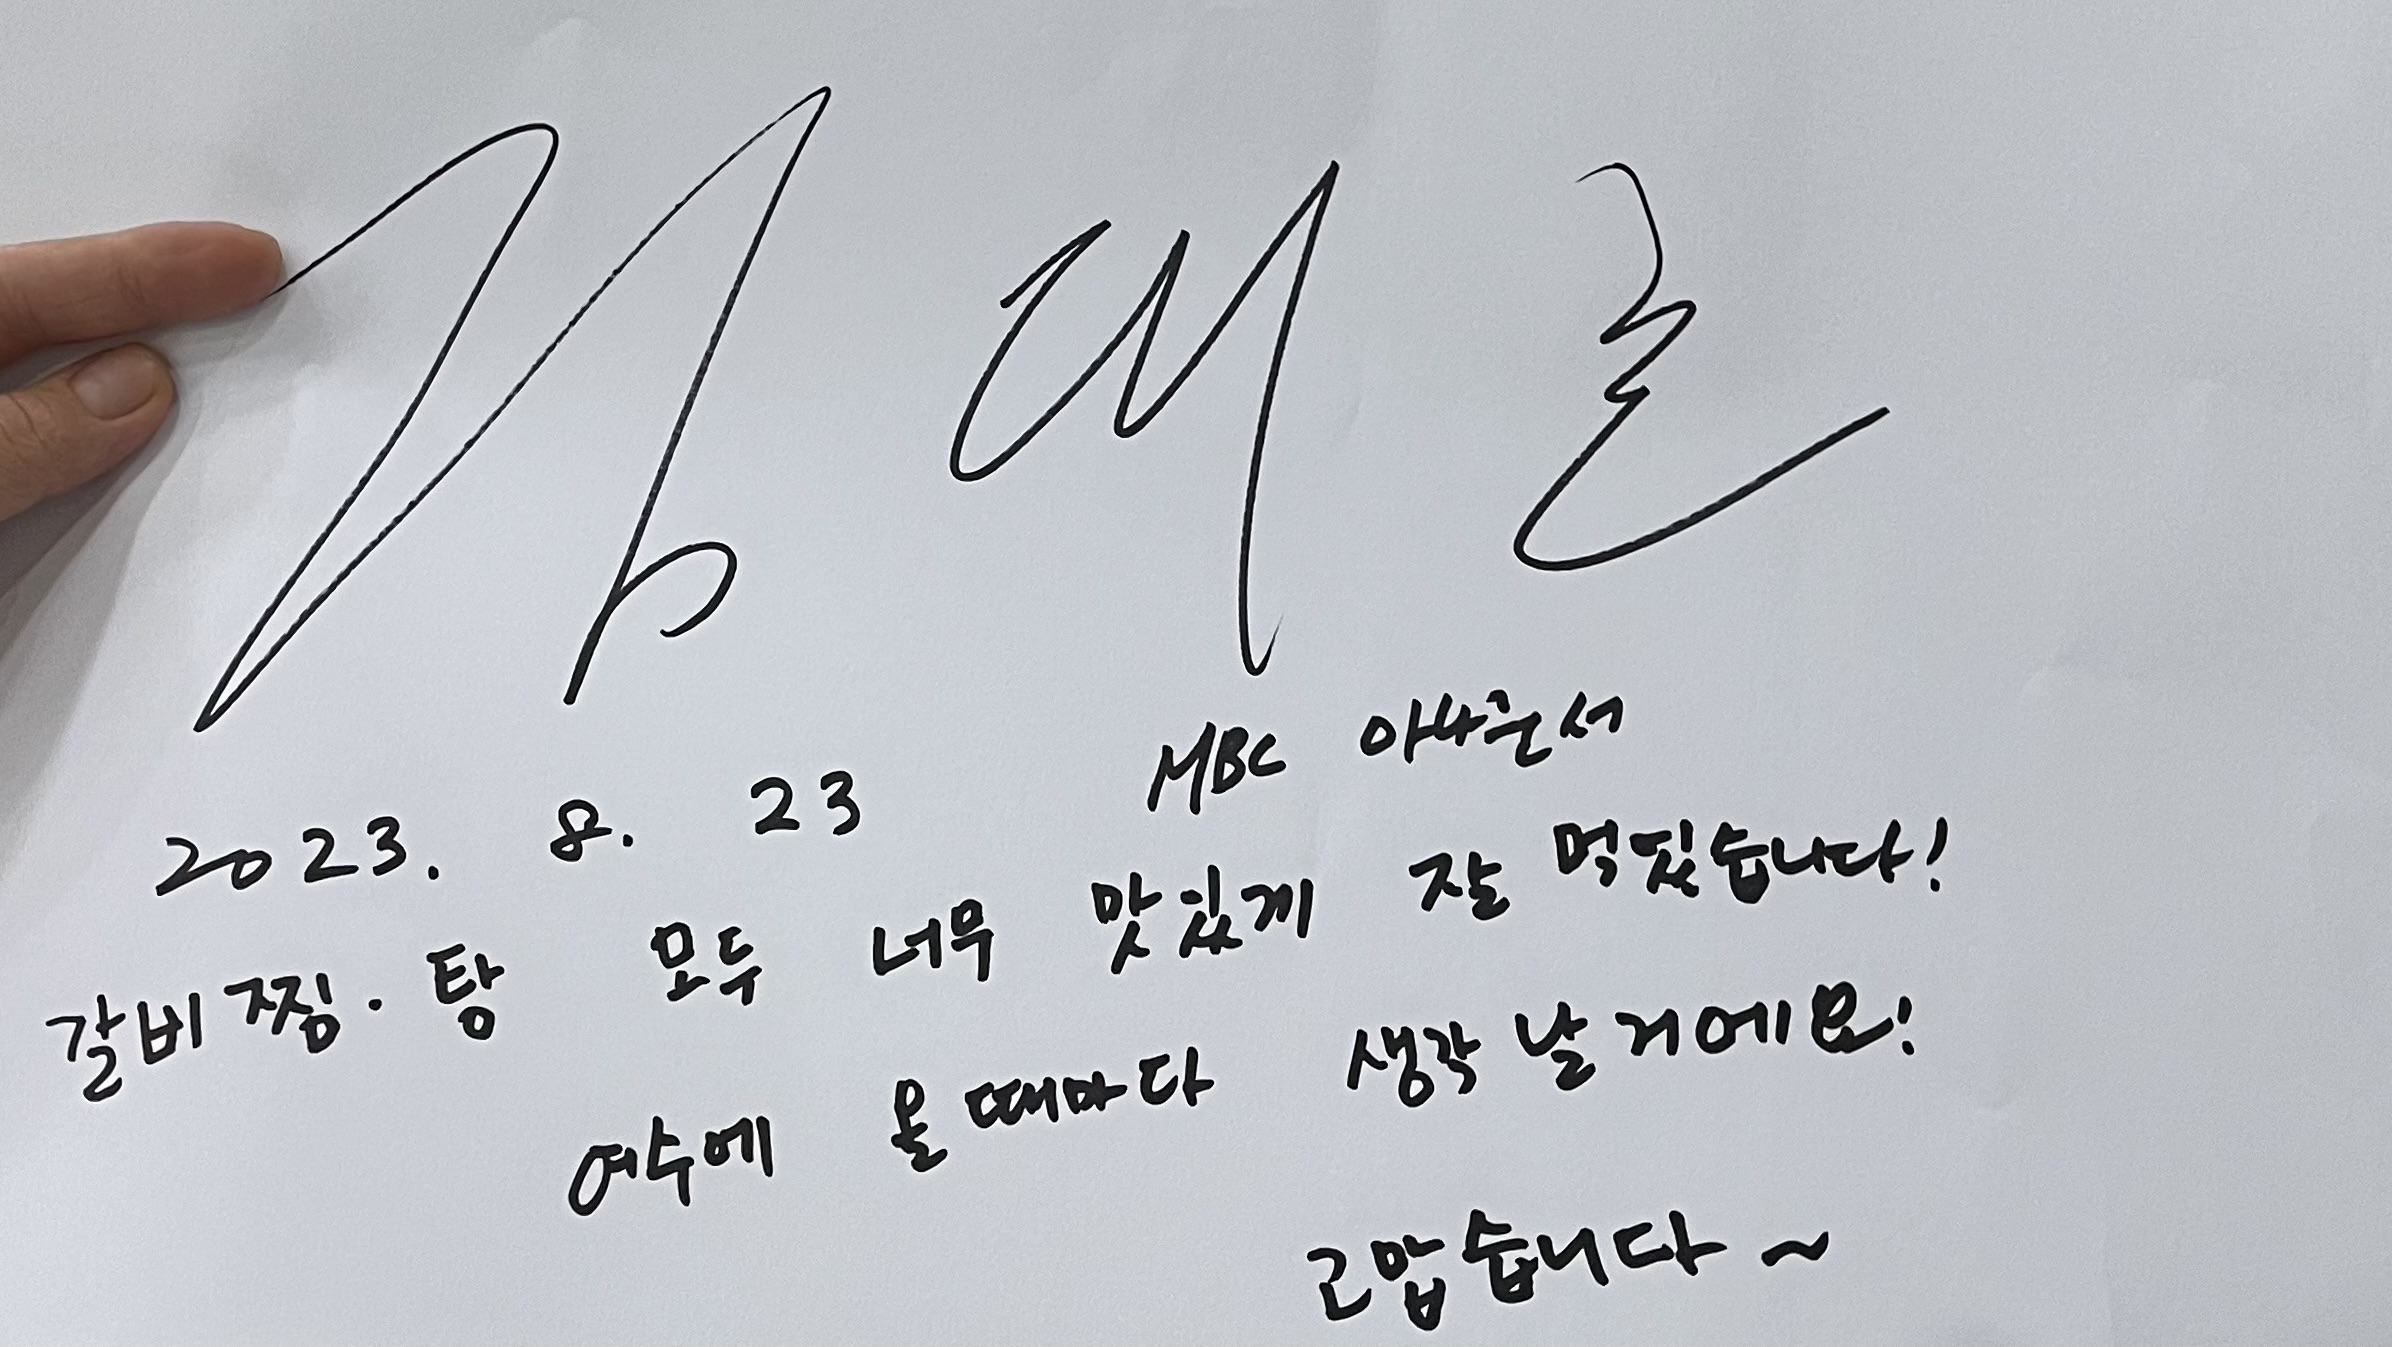 MBC 아나운서
2023. 8. 23
갈비찜·탕 모두 너무 맛있게 잘 먹었습니다!
여수에 올때마다 생각날거에요!
고맙습니다~